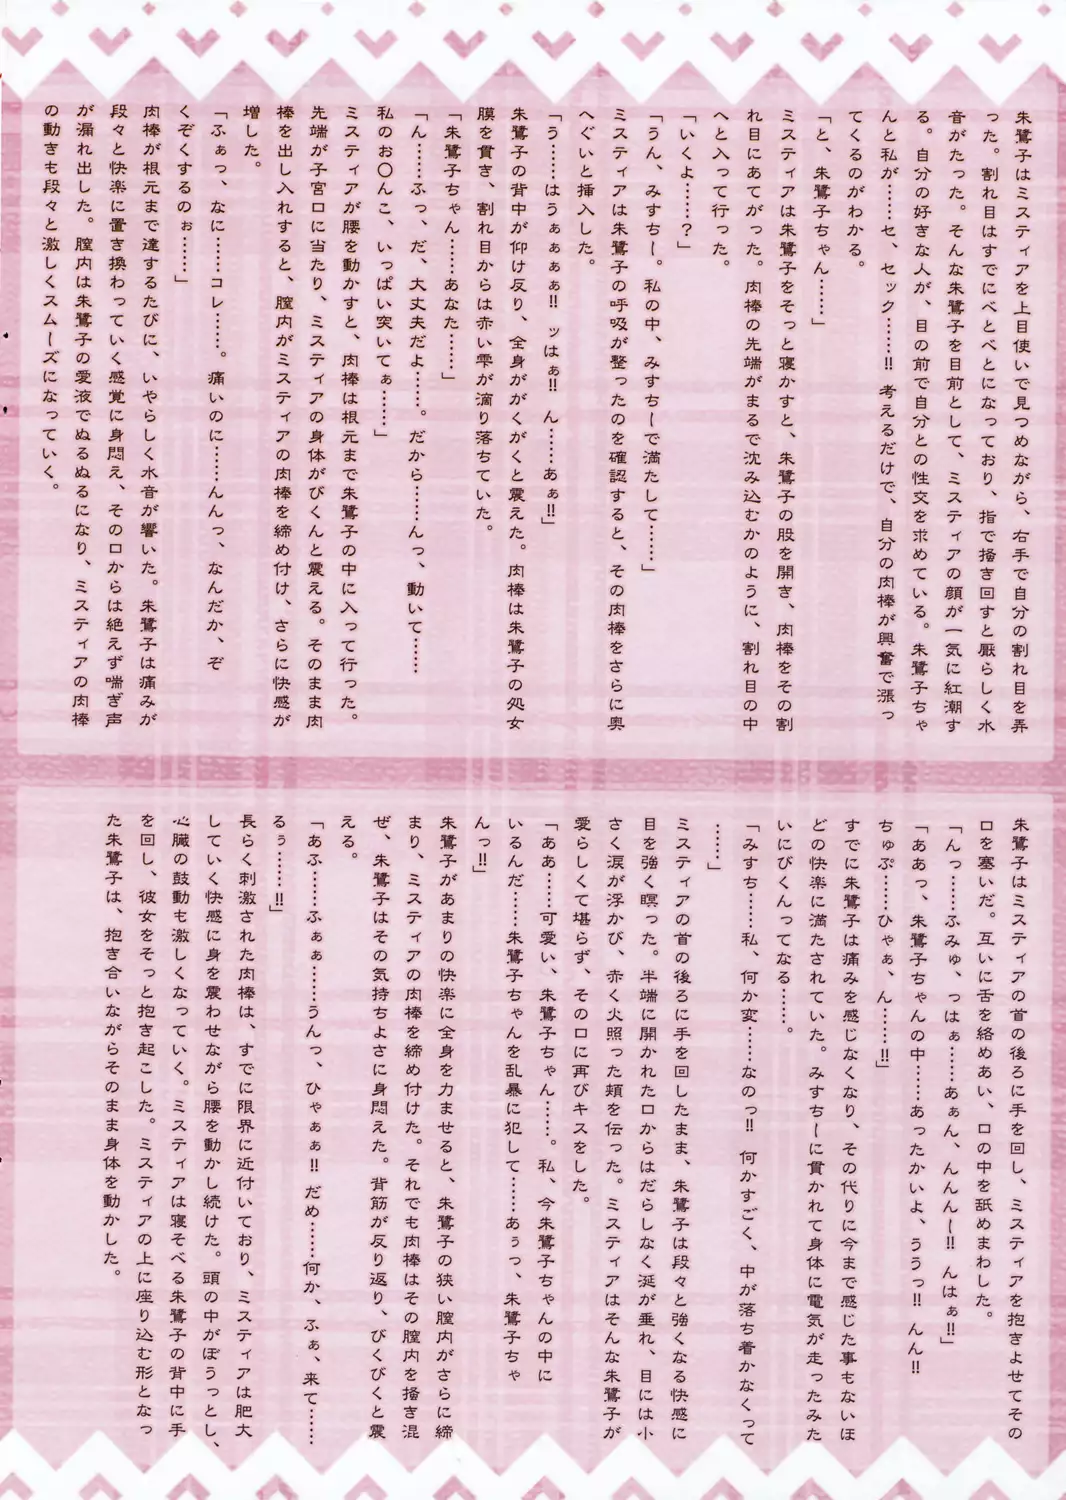 朱鷺子はミスティアを上目使いで見つめながら、右手で自分の割れ目を弄
った。割れ目はすでにべとべとになっており、指で掻き回すと厭らしく水
音がたった。そんな朱鷺子を目前として、ミスティアの顔が一気に紅潮す
る。自分の好きな人が、目の前で自分との性交を求めている。朱鷺子ちゃ
んと私が……セ、セック……!! 考えるだけで、自分の肉棒が興奮で漲っ
てくるのがわかる。
「と、朱鷺子ちゃん……」
ミスティアは朱鷺子をそっと寝かすと、朱鷺子の股を開き、肉棒をその割
れ目にあてがった。肉棒の先端がまるで沈み込むかのように、割れ目の中
へと入って行った。
「いくよ……?」
「うん、みすち〜。私の中、みすち〜で満たして……」
ミスティアは朱鷺子の呼吸が整ったのを確認すると、その肉棒をさらに奥
へぐいと挿入した。
「う……はうぁぁぁぁ!! ッはぁ!! ん……あぁ!!」
朱鷺子の背中が仰け反り、全身ががくがくと震えた。肉棒は朱鷺子の処女
膜を貫き、割れ目からは赤い雫が滴り落ちていた。
「朱鷺子ちゃん……あなた……」
「ん……ふっ、だ、大丈夫だよ……。だから……んっ、動いて……
私のお〇んこ、いっぱい突いてぁ……」
ミスティアが腰を動かすと、肉棒は根元まで朱鷺子の中に入って行った。
先端が子宮口に当たり、ミスティアの身体がびくんと震える。そのまま肉
棒を出し入れすると、膣内がミスティアの肉棒を締め付け、さらに快感が
増した。
「ふぁっ、なに……コレ……。痛いのに……んんっ、なんだか、ぞ
くぞくするのぉ……」
肉棒が根元まで達するたびに、いやらしく水音が響いた。朱鷺子は痛みが
段々と快楽に置き換わっていく感覚に身悶え、その口からは絶えず喘ぎ声
が漏れ出した。膣内は朱鷺子の愛液でぬるぬるになり、ミスティアの肉棒
の動きも段々と激しくスムーズになっていく。
朱鷺子はミスティアの首の後ろに手を回し、ミスティアを抱きよせてその
口を塞いだ。互いに舌を絡めあい、口の中を舐めまわした。
「んっ……ふみゅ、っはぁ……あぁん、んんん〜!! んはぁ!!」
「ああっ、朱鷺子ちゃんの中……あったかいよ、ううっ!! んん!!
ちゅぷ……ひゃぁ、ん……!!」
すでに朱鷺子は痛みを感じなくなり、その代りに今まで感じた事もないほ
どの快楽に満たされていた。みすち〜に貫かれて身体に電気が走ったみた
いにびくんってなる……。
「みすち……私、何か変……なのっ!! 何かすごく、中が落ち着かなくって
……」
ミスティアの首の後ろに手を回したまま、朱鷺子は段々と強くなる快感に
目を強く瞑った。半端に開かれた口からはだらしなく涎が垂れ、目には小
さく涙が浮かび、赤く火照った頬を伝った。ミスティアはそんな朱鷺子が
愛らしくて堪らず、その口に再びキスをした。
「ああ……可愛い、朱鷺子ちゃん……。私、今朱鷺子ちゃんの中に
いるんだ……朱鷺子ちゃんを乱暴に犯して……あぅっ、朱鷺子ちゃ
んっ!!」
朱鷺子があまりの快楽に全身を力ませると、朱鷺子の狭い膣内がさらに締
まり、ミスティアの肉棒を締め付けた。それでも肉棒はその膣内を掻き混
ぜ、朱鷺子はその気持ちよさに身悶えた。背筋が反り返り、びくびくと震
える。
「あふ……ふぁぁ……うんっ、ひゃぁぁ!! だめ……何か、ふぁ、来て……
るぅ……!!」
長らく刺激された肉棒は、すでに限界に近付いており、ミスティアは肥大
していく快感に身を震わせながら腰を動かし続けた。頭の中がぼうっとし、
心臓の鼓動も激しくなっていく。ミスティアは寝そべる朱鷺子の背中に手
を回し、彼女をそっと抱き起こした。ミスティアの上に座り込む形となっ
た朱鷺子は、抱き合いながらそのまま身体を動かした。